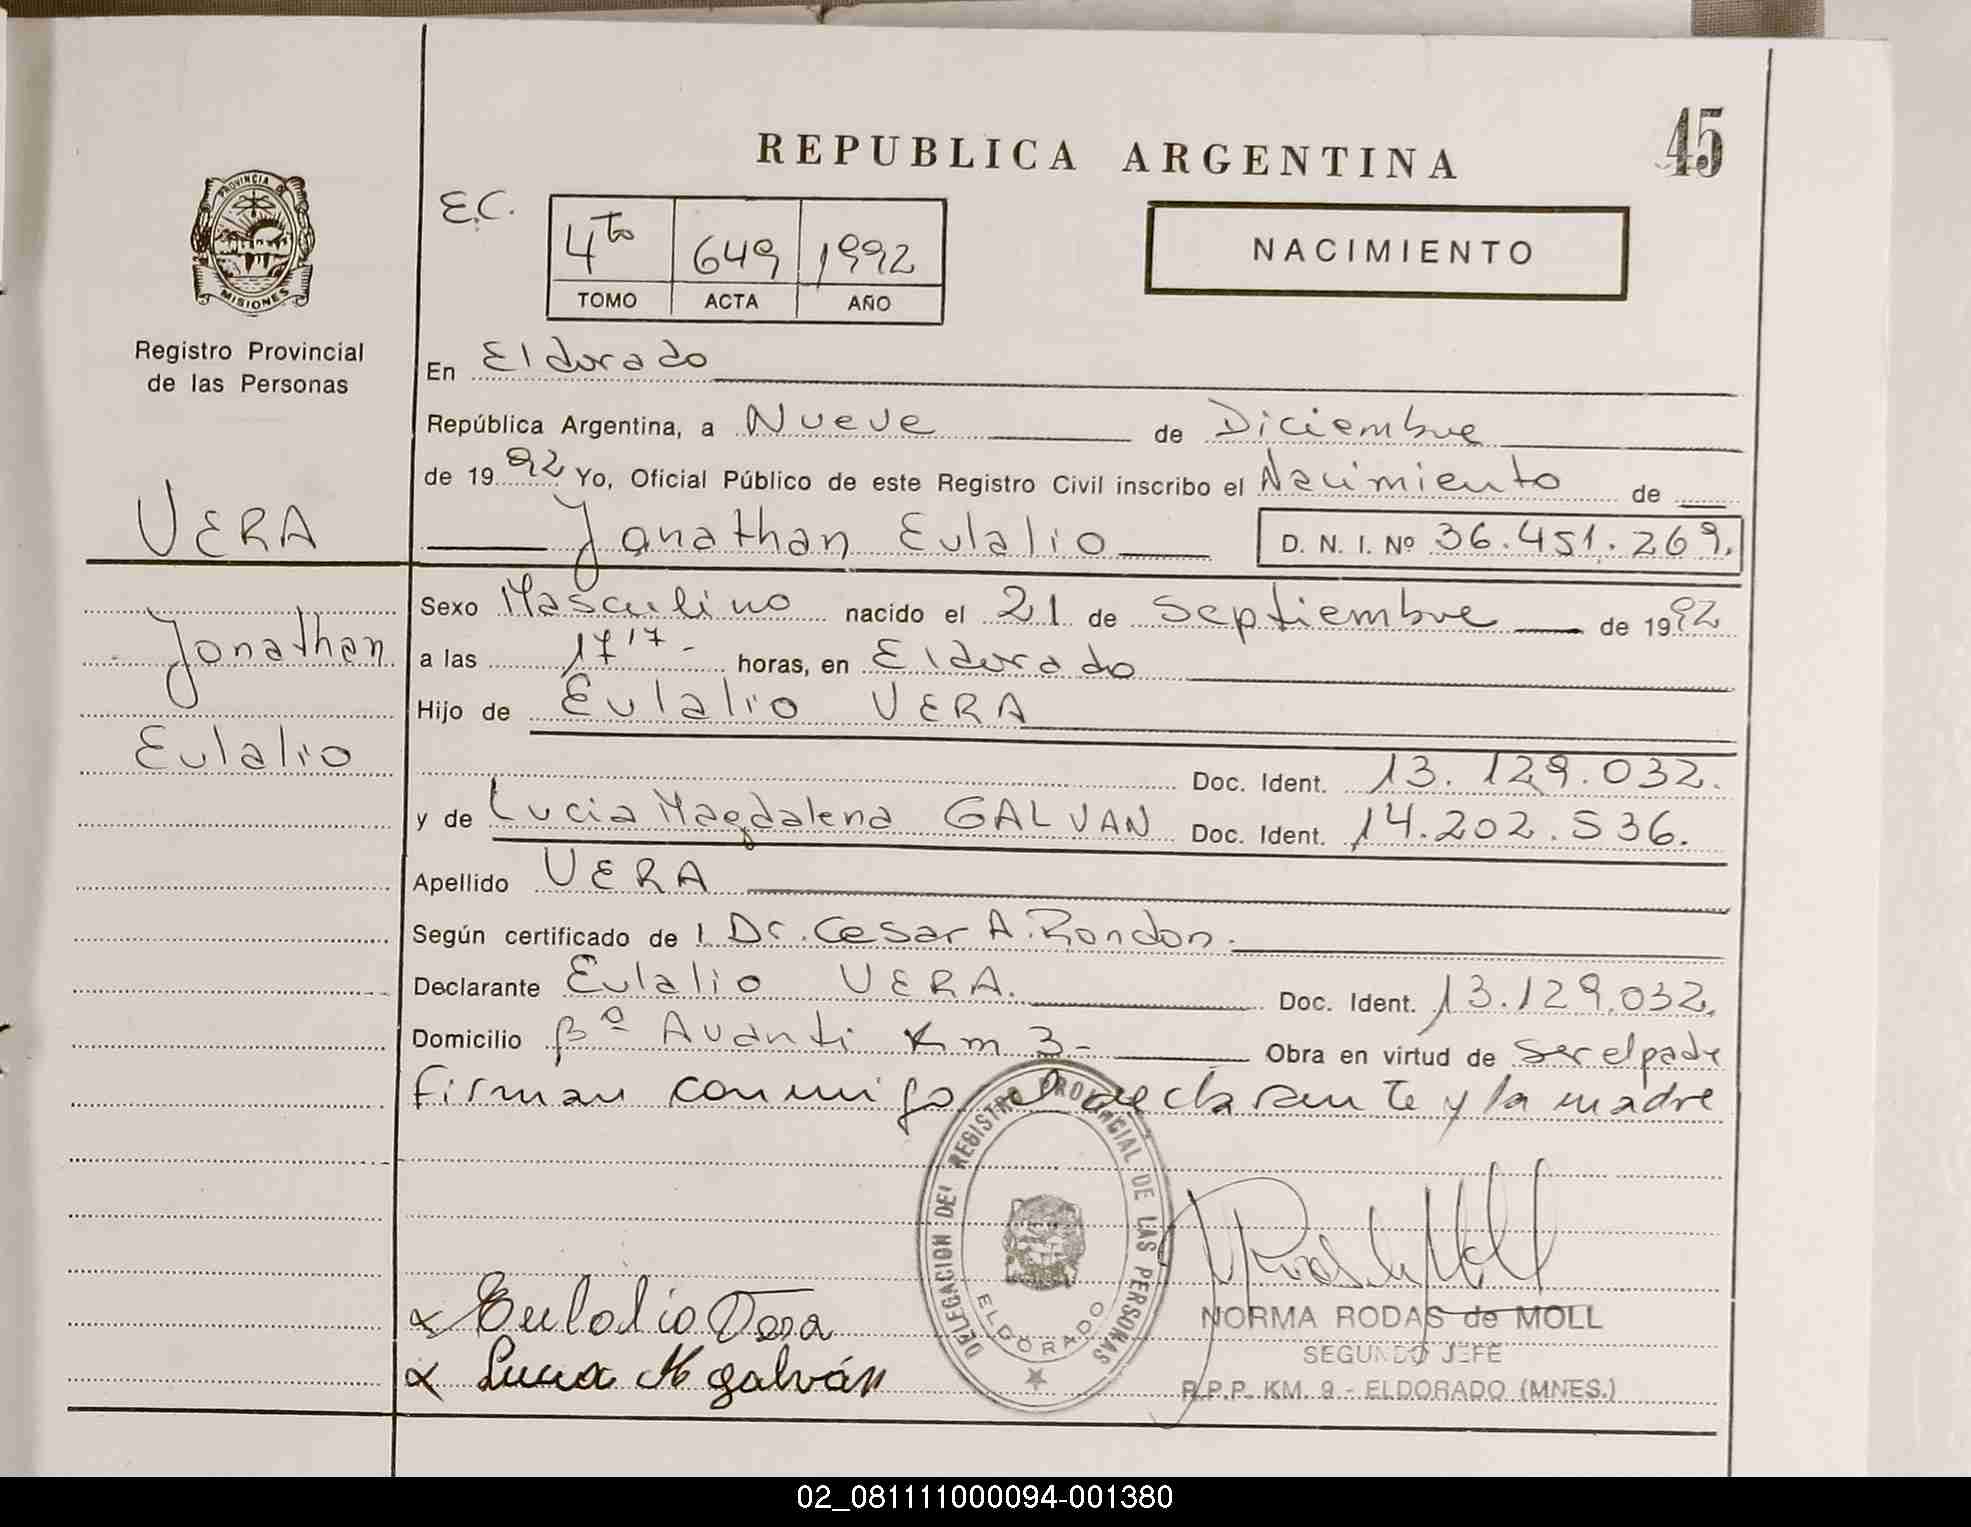 45
REPUBLICA ARGENTINA
PROVINCIA DE
MISIONES
E.C.
4to 649 1992
TOMO ACTA AÑO
NACIMIENTO
Registro Provincial
de las Personas
En Eldorado
República Argentina, a Nueve de Diciembre
de 1992 Yo, Oficial Público de este Registro Civil inscribo el Nacimiento de
VERA
Jonathan Eulalio D. N. I. Nº 36.451.269.
Jonathan
Eulalio
Sexo Masculino nacido el 21 de Septiembre de 1992
a las 17'17- horas, en Eldorado
Hijo de Eulalio VERA
Doc. Ident. 13.129.032.
y de Lucia Magdalena GALVAN Doc. Ident. 14.202.536.
Apellido VERA
Según certificado de l Dr. Cesar A. Rondon.
Declarante Eulalio VERA. Doc. Ident. 13.129.032.
Domicilio Bº Avanti Km 3- Obra en virtud de ser el padre
Firman conmigo el declarante y la madre
DELEGACION DEL REGISTRO PROVINCIAL DE LAS PERSONAS
ELDORADO
Eulalio Vera
Lucia M galván
NORMA RODAS de MOLL
SEGUNDO JEFE
R.P.P. KM. 9 - ELDORADO (MNES.)
02_081111000094-001380